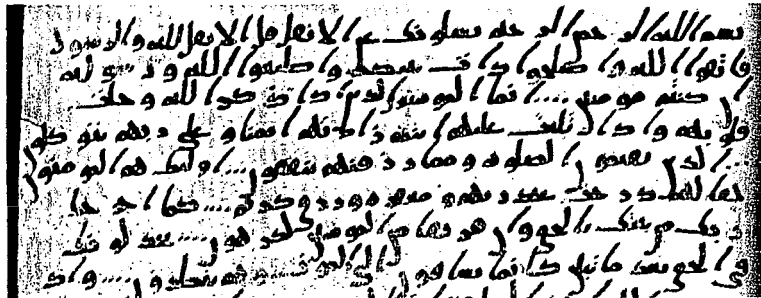 بسم الله الرحمن الرحيم يسلونك عن الانفل قل الانفل لله والرسول
فاتقوا الله واصلحوا ذات بينكم واطيعوا الله ورسوله
ان كنتم مومنين انما المومنون الذين اذا ذكر الله وجلت
قلوبهم واذا تليت عليهم ايته زادتهم ايمنا وعلى ربهم يتوكلو
ن الذين يقيمون الصلوة ومما رزقنهم ينفقون اوليك هم المومنون
حقا لهم درجت عند ربهم ومغفرة ورزق كريم كما اخرجك
ربك من بيتك بالحق وان فريقا من المومنين لكرهون يجدلونك
في الحق بعد ما تبين كانما يساقون الى الموت وهم ينظرون واذ